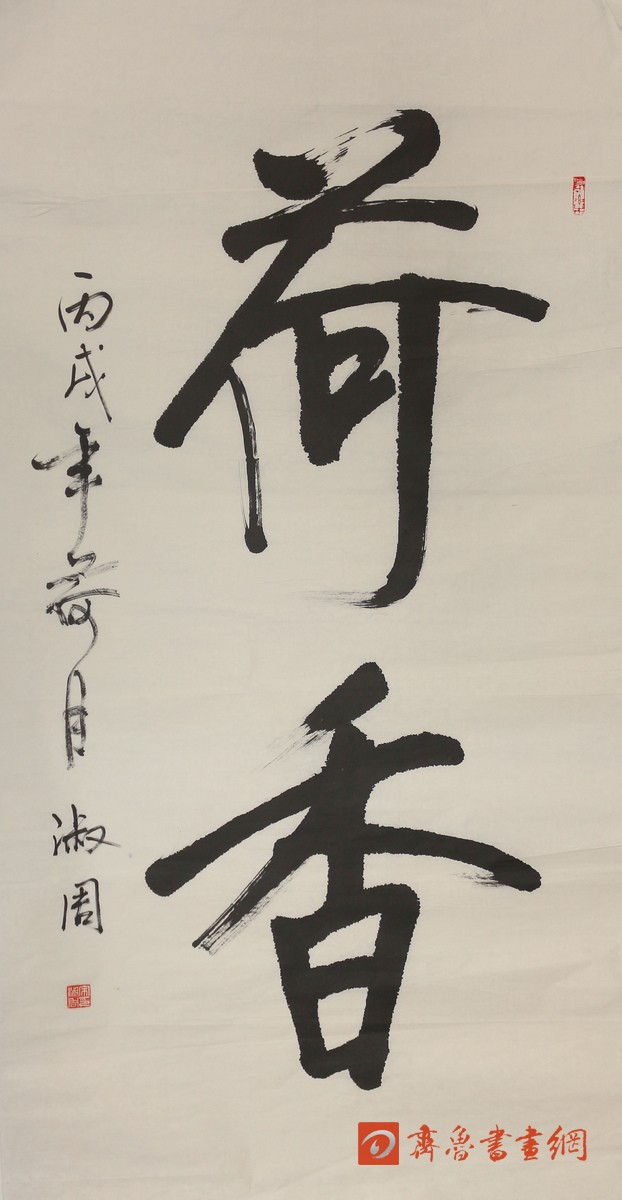 荷香
丙戌年荷月 淑周
齊魯書畫網